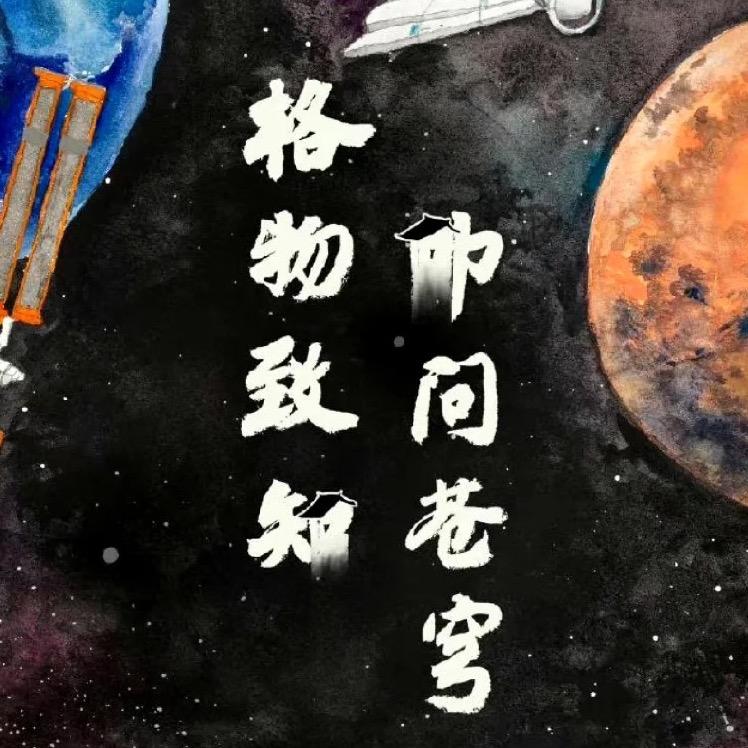 叩问苍穹
格物致知